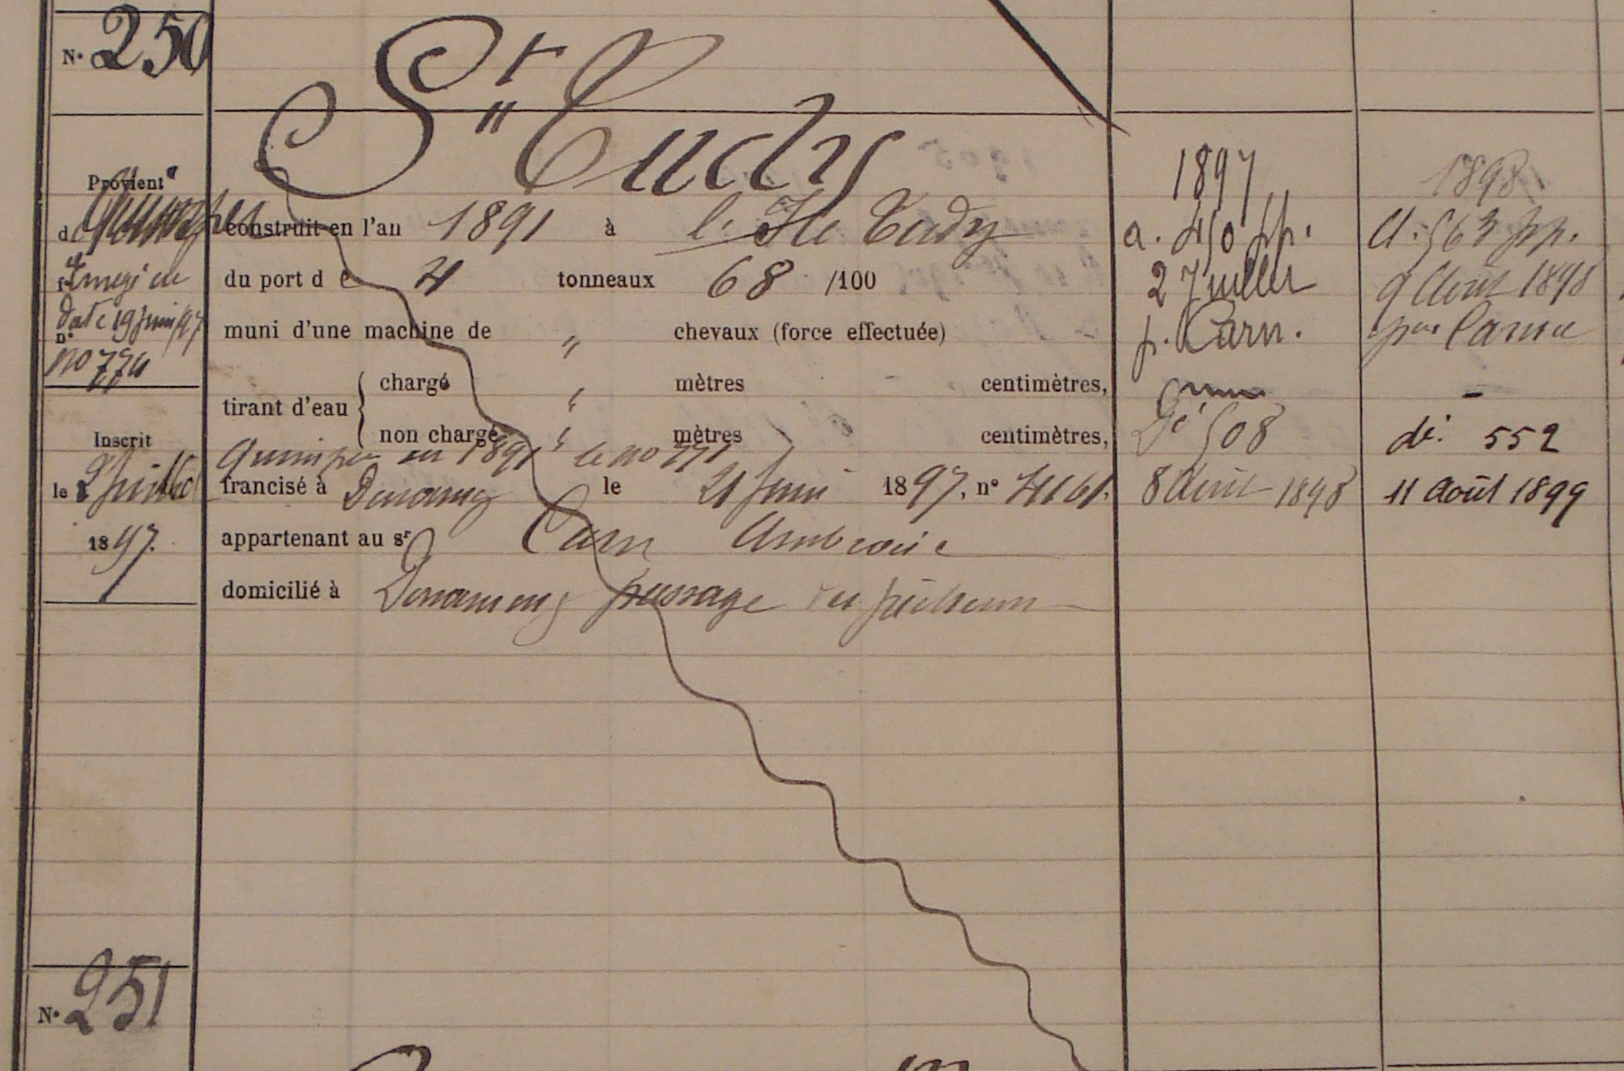 N° 250
St Tudy
Provient
d Quimper
date 19 juin 97
n°
no 774
Inscrit
le 2 juillet
1897.
construit en l'an 1891 à l'Ile Tudy
du port d e 4 tonneaux 68 /100
muni d'une machine de " chevaux (force effectuée)
tirant d'eau
chargé " mètres centimètres,
non chargé " mètres centimètres,
Quimper en 1891 le no 771
francisé à Douarnenez le 21 juin 1897. n° 4161.
appartenant au sr Carn Ambroise
domicilié à Douarnenez passage
1897
a. 450 pp.
2 Juillet
p. Carn.
Dé 508
8 Août 1898
1898
a. 563 pp.
9 Août 1898
par
dé. 552
11 Août 1899
N° 251